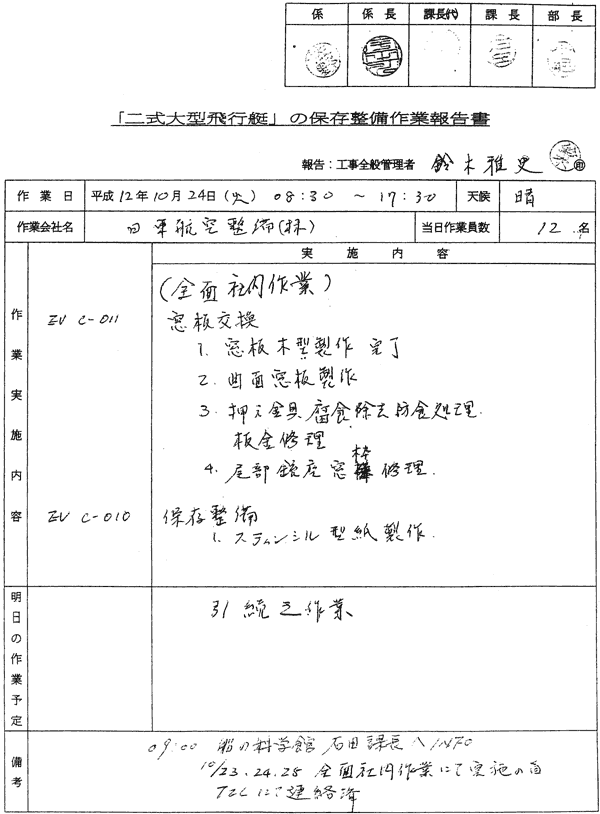 係 係長 課長代 課長 部長
「二式大型飛行艇」の保存整備作業報告書
報告：工事全般管理者 鈴木雅史 印
作業日 平成12年10月24日（火）08:30 ～ 17:30 天候 晴
作業会社名 日東航空整備(株) 当日作業員数 12名
作業実施内容
実施内容
(全面社内作業)
EV C-011 窓板交換
1. 窓板木型製作 完了
2. 曲面窓板製作
3. 押え金具腐食除去防食処理.
板金修理
4. 尾部銃座窓枠修理.
EV C-010 保存整備
1. ステンシル型紙製作.
明日の作業予定
引続き作業
備考
09:00 船の科学館 石田課長へINFO
10/23.24.25 全面社内作業にて実施の旨
TELにて連絡済